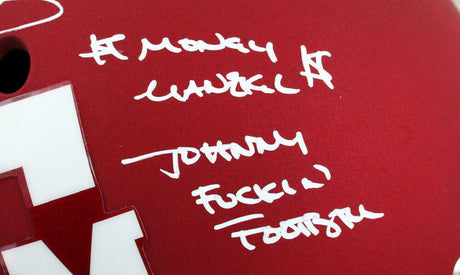 $ MONEY
MANZIEL $
JOHNNY
FUCKIN'
FOOTBALL